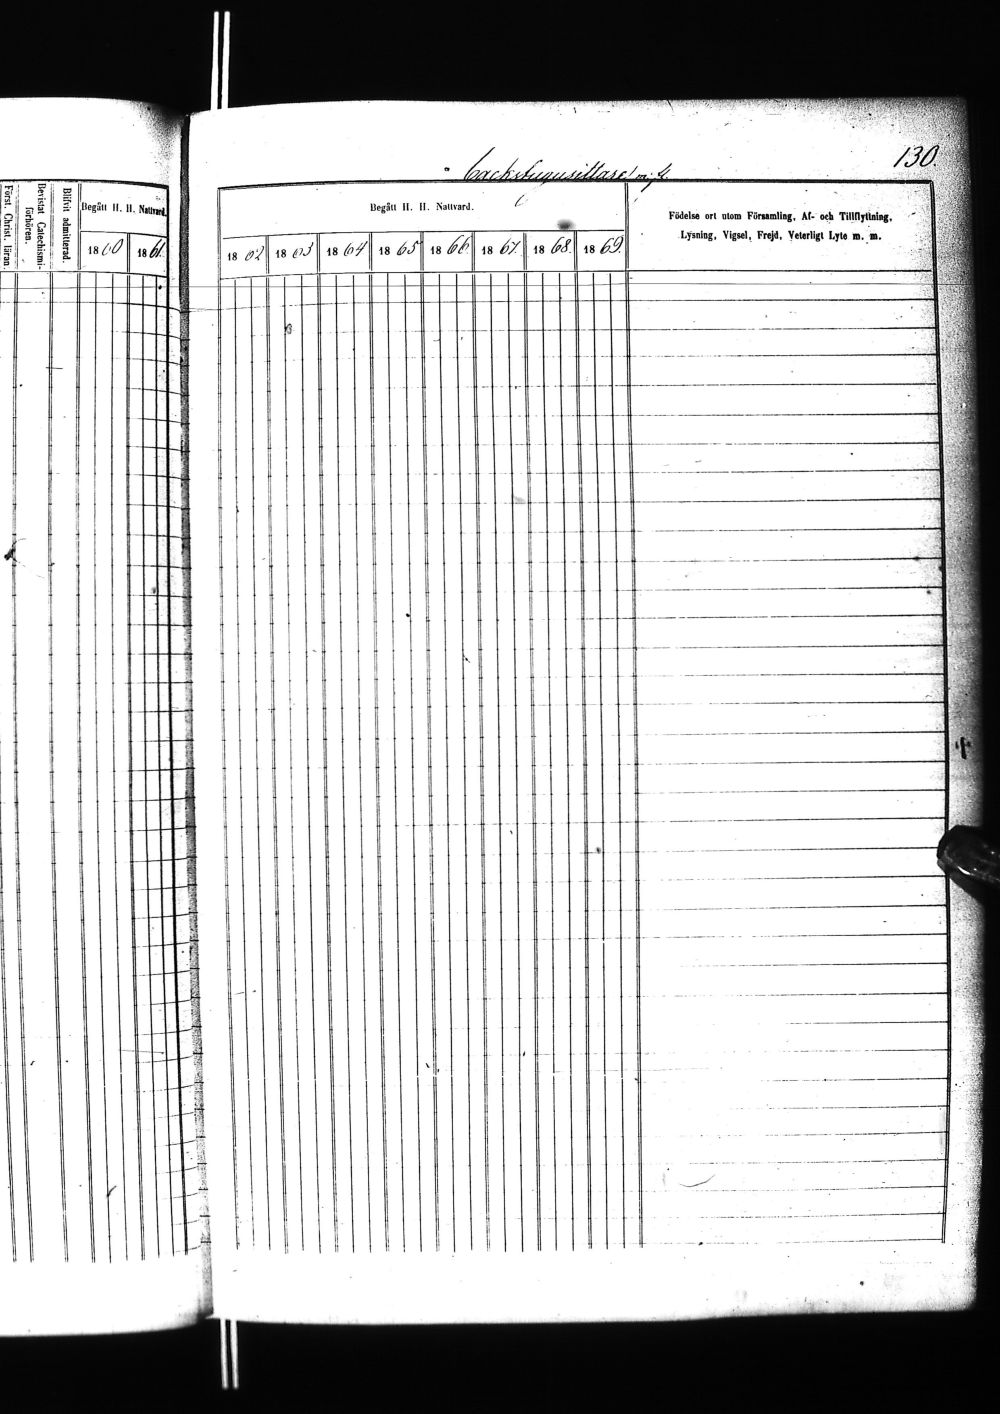 130.
Backstugusittare m. fl.
Först. Christ. läran.
Bevistat Catechismi-
förhören.
Blifvit admitterad.
Begått H. H. Nattvard.
1860 1861.
Begått H. H. Nattvard.
1862 1863 1864 1865 1866. 1867. 1868. 1869.
Födelse ort utom Församling, Af- och Tillflyttning,
Lysning, Vigsel, Frejd, Veterligt Lyte m. m.